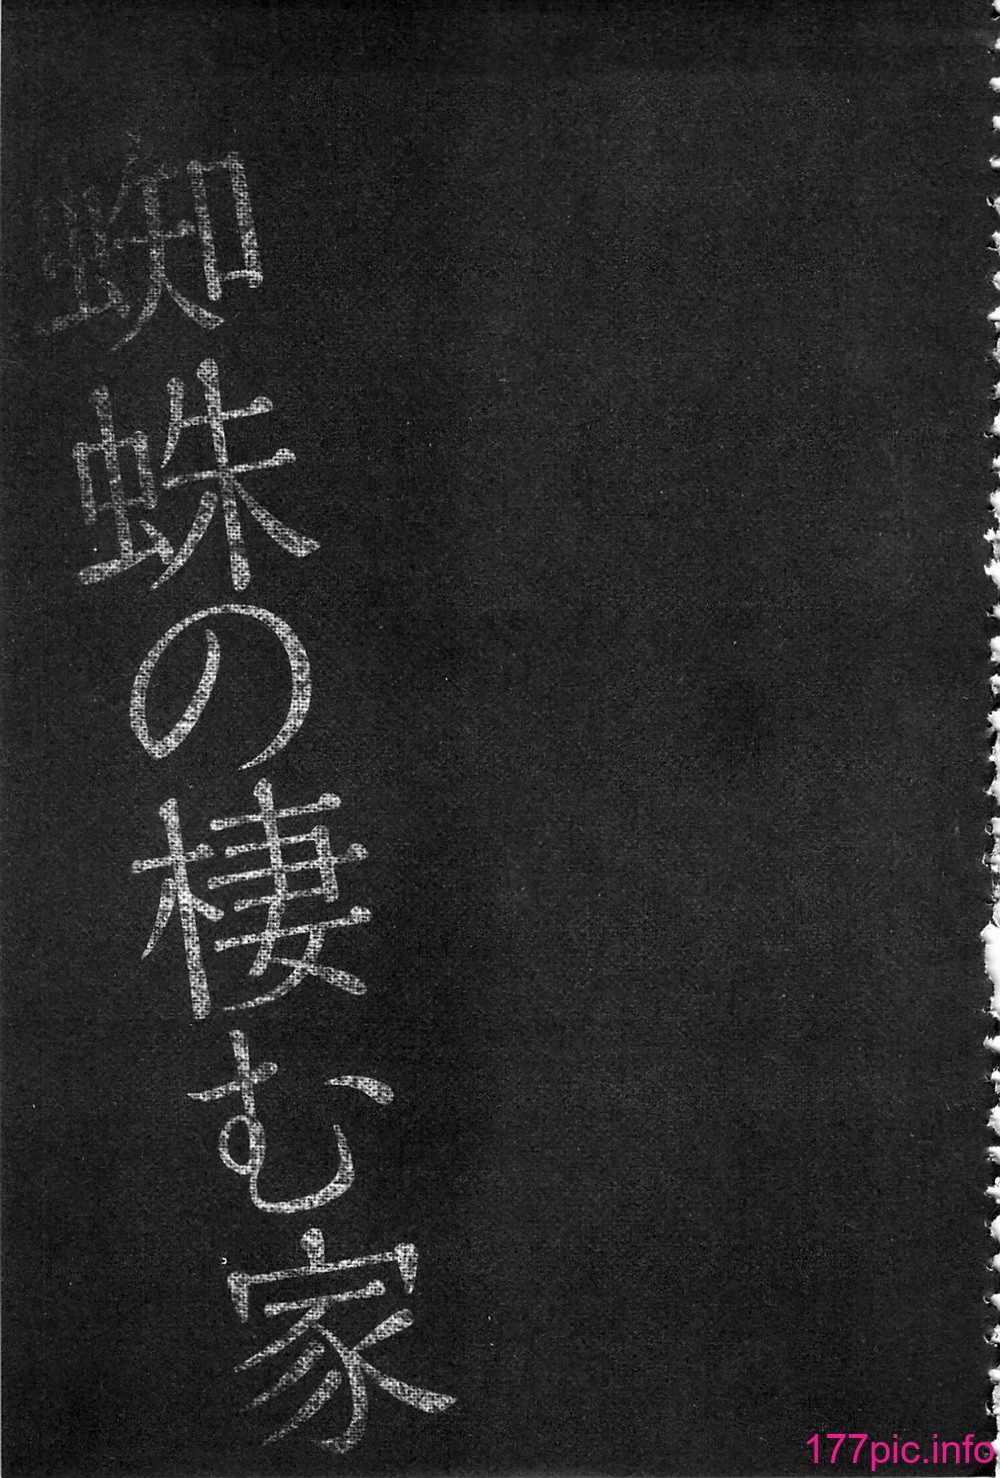 蜘蛛の棲む家
177pic.info